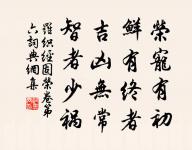 榮寵有初
鮮有終者
吉凶無常
智者少禍
羅織經閻榮卷第
六詞典網集